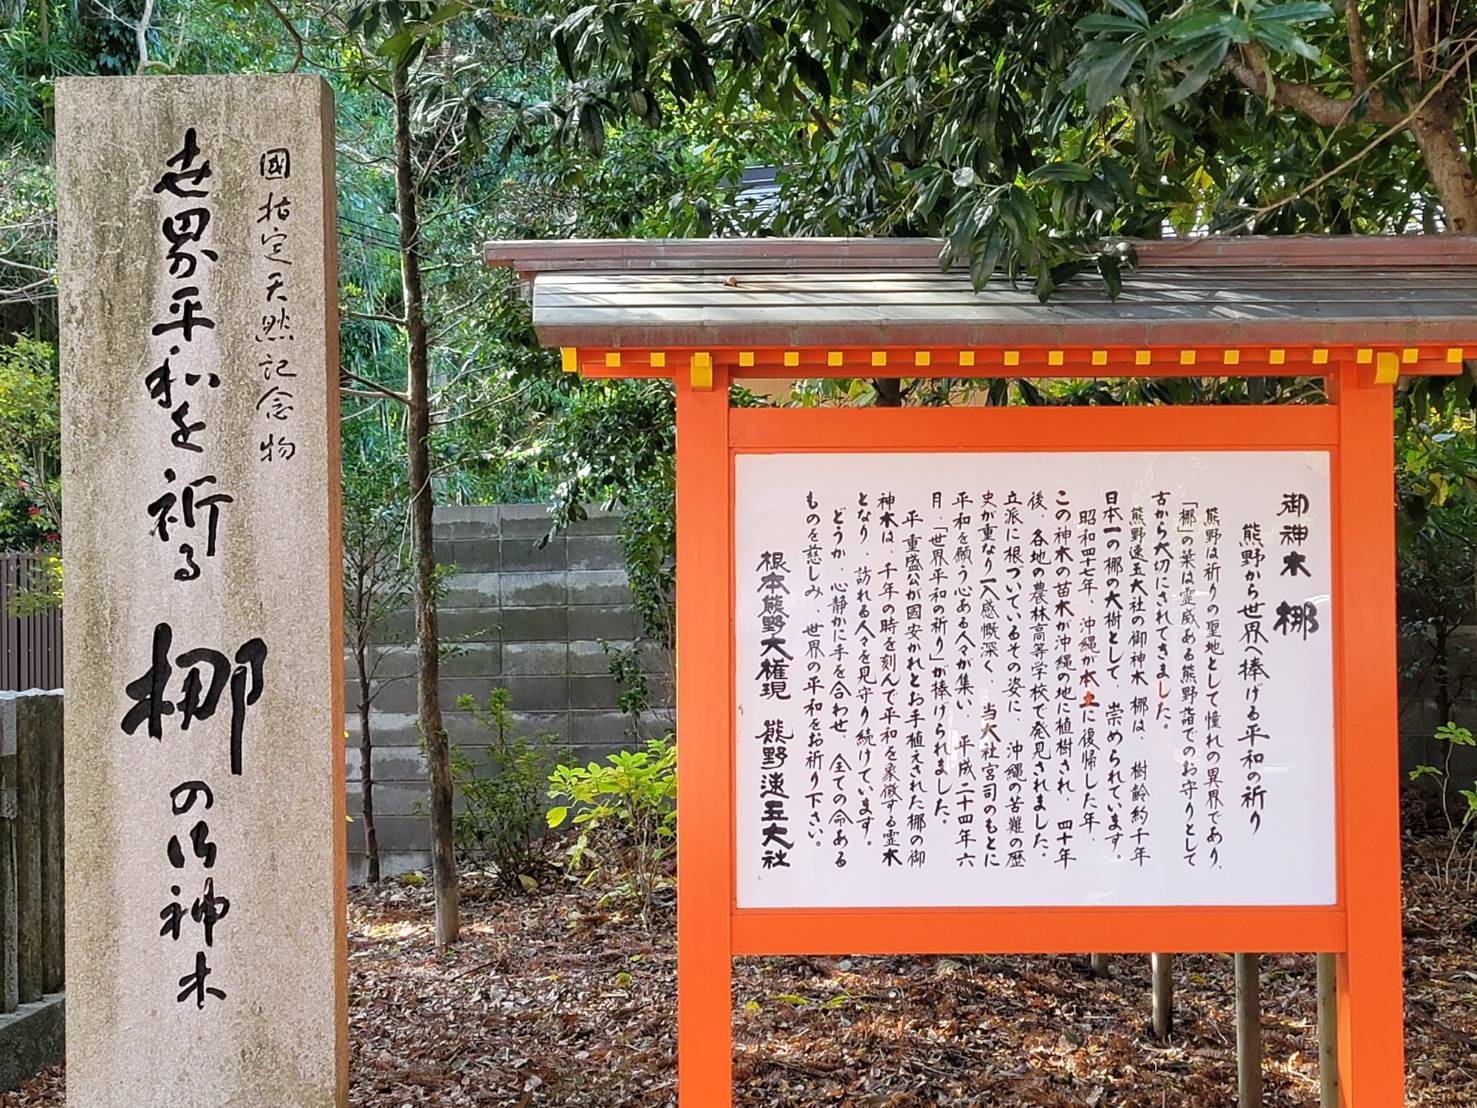 國指定天然記念物
世界平和を祈る 梛の御神木
御神木 梛
熊野から世界へ捧げる平和の祈り
熊野は祈りの聖地として憧れの異界であり、
「梛」の葉は霊威ある熊野詣でのお守りとして
古から大切にされてきました。
熊野速玉大社の御神木 梛は、樹齢約千年
日本一の梛の大樹として、崇められています。
昭和四十七年、沖縄が本土に復帰した年、
この神木の苗木が沖縄の地に植樹され、四十年
後、各地の農林高等学校で発見されました。
立派に根づいているその姿に、沖縄の苦難の歴
史が重なり一入感慨深く、当大社宮司のもとに
平和を願う心ある人々が集い、平成二十四年六
月、「世界平和の祈り」が捧げられました。
平重盛公が國安かれとお手植えされた梛の御
神木は、千年の時を刻んで平和を象徴する霊木
となり、訪れる人々を見守り続けています。
どうか、心静かに手を合わせ、全ての命ある
ものを慈しみ、世界の平和をお祈り下さい。
根本熊野大権現 熊野速玉大社